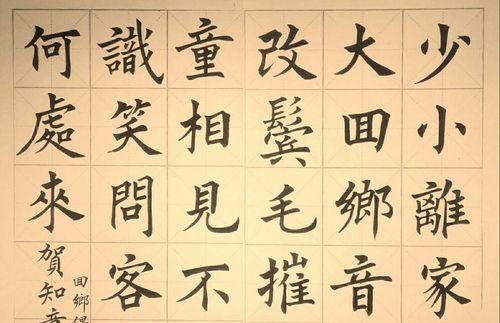 少小離家
大囬鄉音
改鬓毛摧
童相見不
識笑問客
何處來
囬鄉偶
賀知章